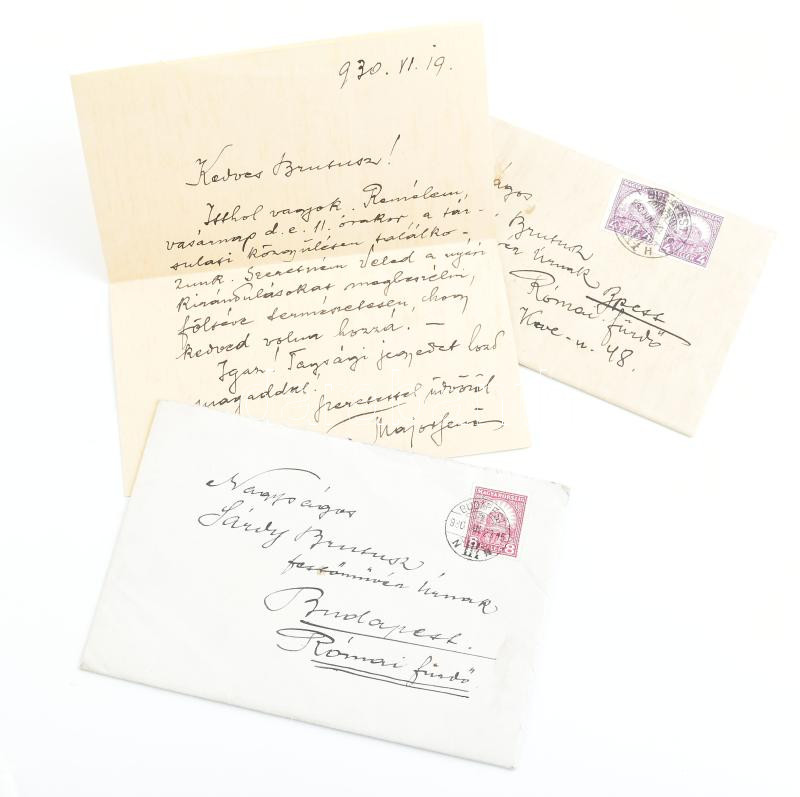 930. VI. 19.
Kedves Brutusz!
Itthol vagyok. Remélem,
vasárnap d.e. 11. órakor a tár-
sulati közgyűlésen találko-
zunk. Szeretném Veled a nyári
kirándulásokat megbeszélni,
föltéve természetesen, hogy
kedved volna hozzá. —
Igaz! Tagsági jegyedet hozd
magaddal!
Szeretettel üdvözöl
Majorjenő
ságos
Brutusz
Úrnak
Bpest
Római fürdő
Keve-u. 48.
BUDAPEST
Nagyságos
Sárdy Brutusz
festőművész Úrnak
Budapest.
Római fürdő
MAGYARORSZÁG
8
BUDAPEST